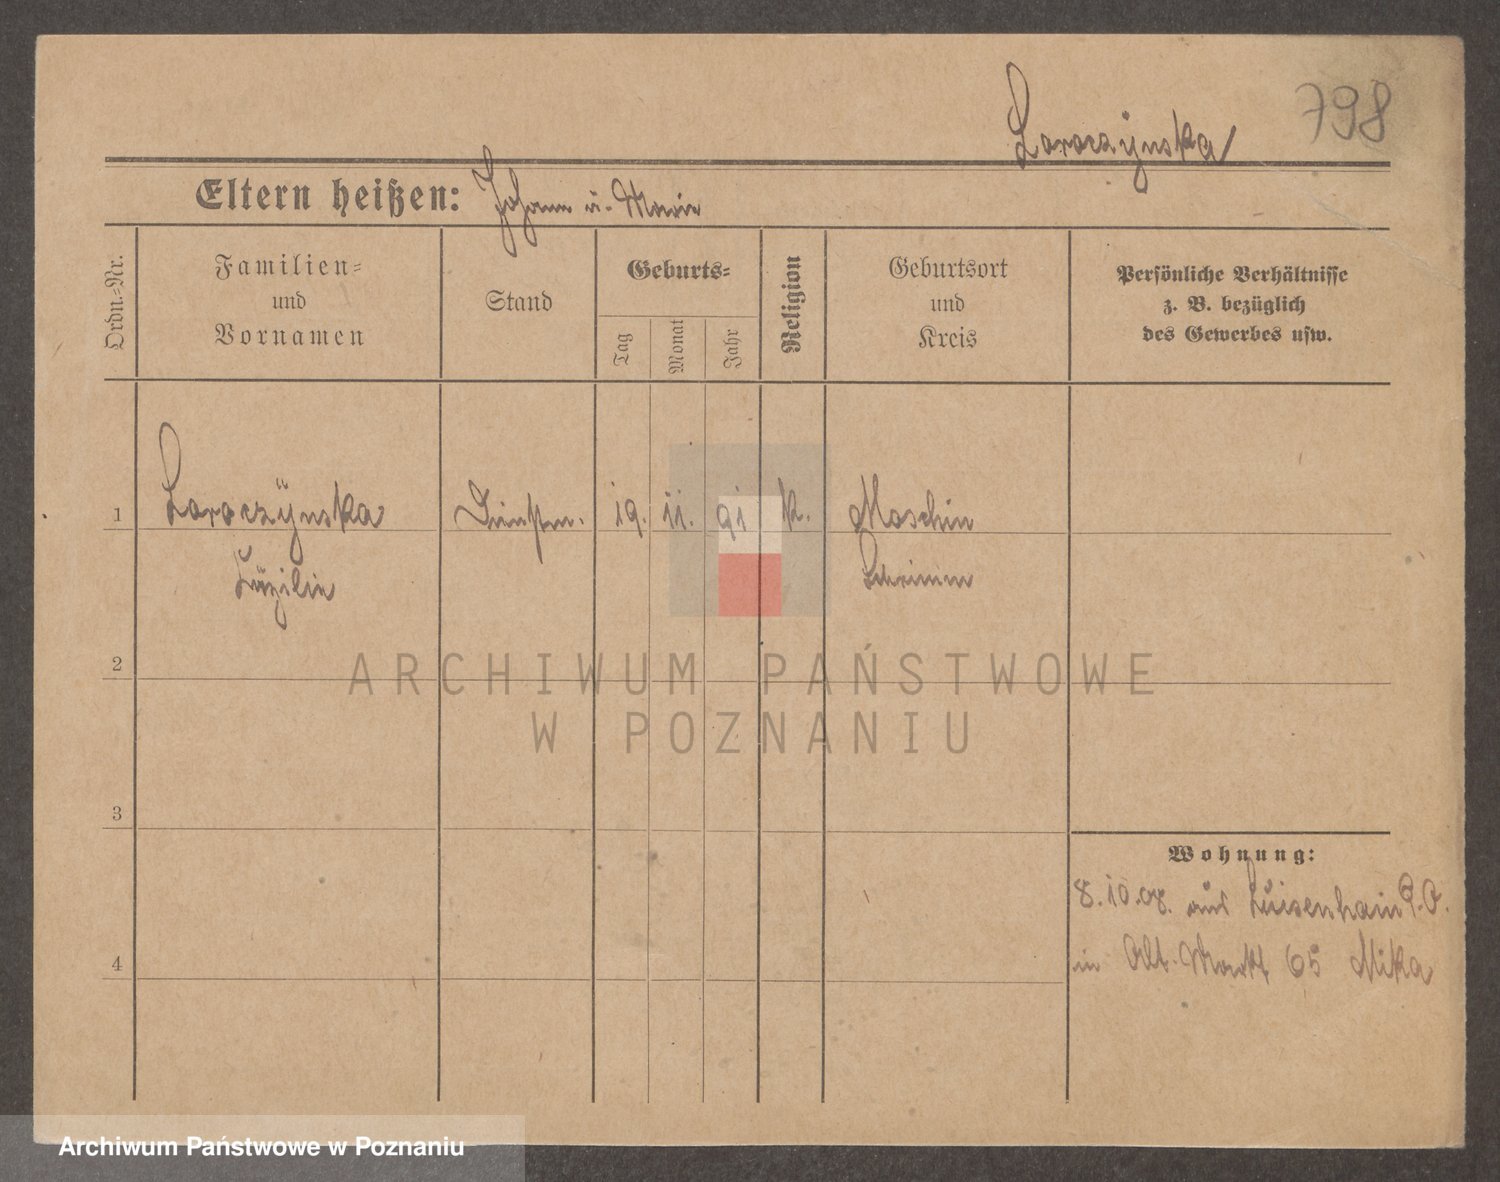 798
Zoroczÿnska
Eltern heißen: Johann u. Marie
Ordn.=Nr.
Familien=
und
Vornamen
Stand
Geburts=
Tag
Monat
Jahr
Religion
Geburtsort
und
Kreis
Persönliche Verhältnisse
z. B. bezüglich
des Gewerbes usw.
1 19. 11. 91 k. Moschin
Schrimm
2
ARCHIWUM PAŃSTWOWE
W POZNANIU
3
Wohnung:
8.10.08. aus Luisenhain P.O.
4
in Alt. Markt 65 Mika
Archiwum Państwowe w Poznaniu